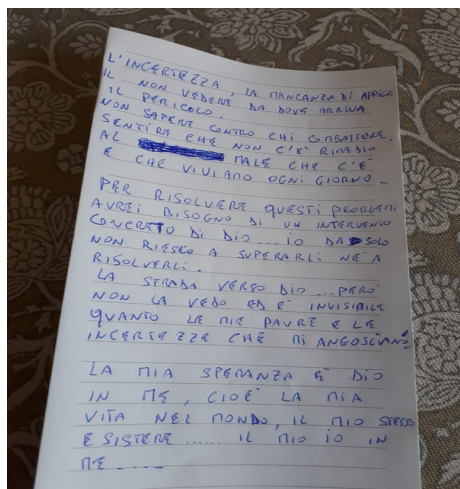 L'INCERTEZZA, LA MANCANZA DI APPIGLI
IL NON VEDERE DA DOVE ARRIVA
IL PERICOLO.
NON SAPERE CONTRO CHI COMBATTERE.
SENTIRE CHE NON C'È RIMEDIO
AL MALE CHE C'È
E CHE VIVIAMO OGNI GIORNO -
PER RISOLVERE QUESTI PROBLEMI
AVREI BISOGNO DI UN INTERVENTO
CONCRETO DI DIO .... IO DA SOLO
NON RIESCO A SUPERARLI NÉ A
RISOLVERLI.
LA STRADA VERSO DIO ... PERÒ
NON LA VEDO ED È INVISIBILE
QUANTO LE MIE PAURE E LE
INCERTEZZE CHE MI ANGOSCIANO.
LA MIA SPERANZA È DIO
IN ME, CIOÈ LA MIA
VITA NEL MONDO, IL MIO STESSO
ESISTERE ...... IL MIO IO IN
ME ....